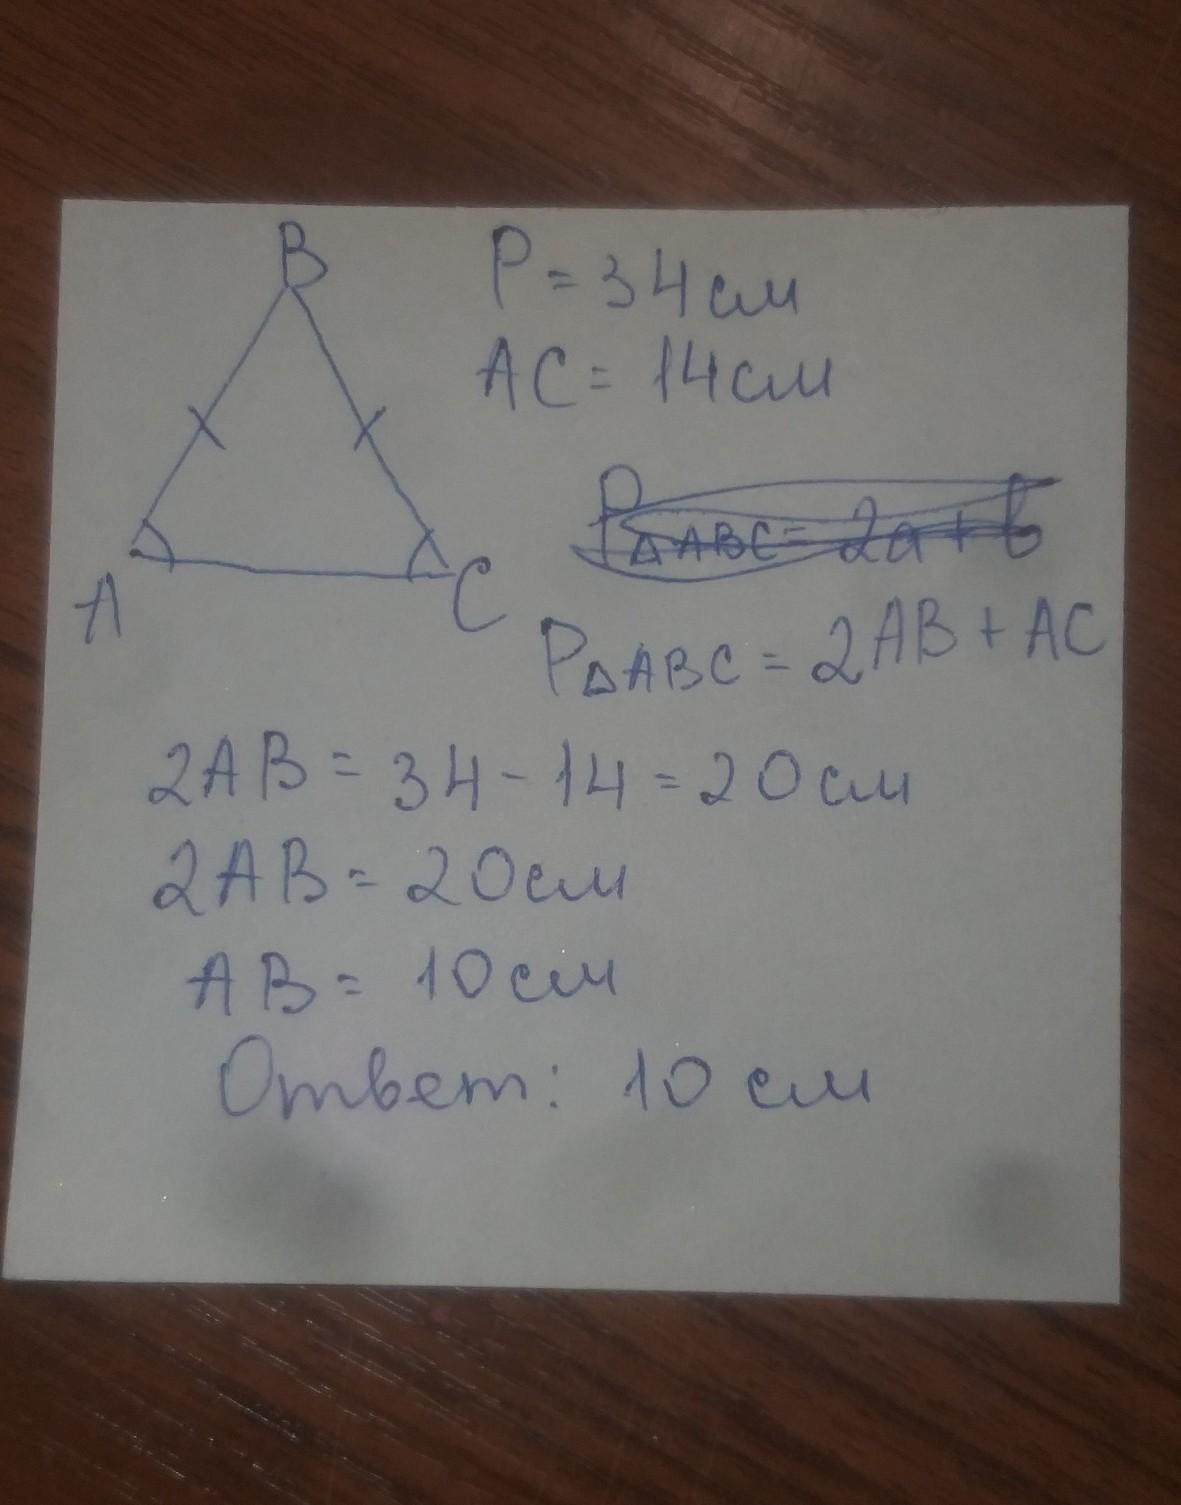 B
P = 34см
AC = 14см
P△ABC = 2a + b
A
C
P△ABC = 2AB + AC
2AB = 34 - 14 = 20см
2AB = 20см
AB = 10см
Ответ: 10 см